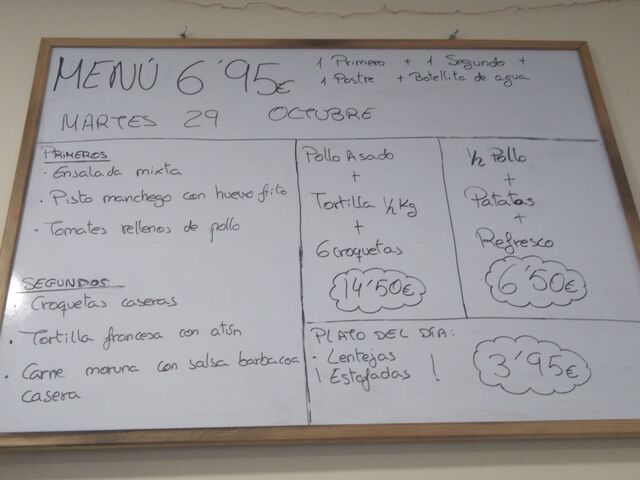 MENÚ 6'95€
1 Primero + 1 Segundo +
1 Postre + Botellita de agua
MARTES 29 OCTUBRE
PRIMEROS
· Ensalada mixta
· Pisto manchego con huevo frito
· Tomates rellenos de pollo
SEGUNDOS:
· Croquetas caseras
· Tortilla francesa con atún
· Carne moruna con salsa barbacoa
casera
Pollo Asado
+
Tortilla 1/2 Kg
+
6 croquetas
14'50€
1/2 Pollo
+
Patatas
+
Refresco
6'50€
PLATO DEL DÍA:
· Lentejas
¡ Estofadas !
3'95€